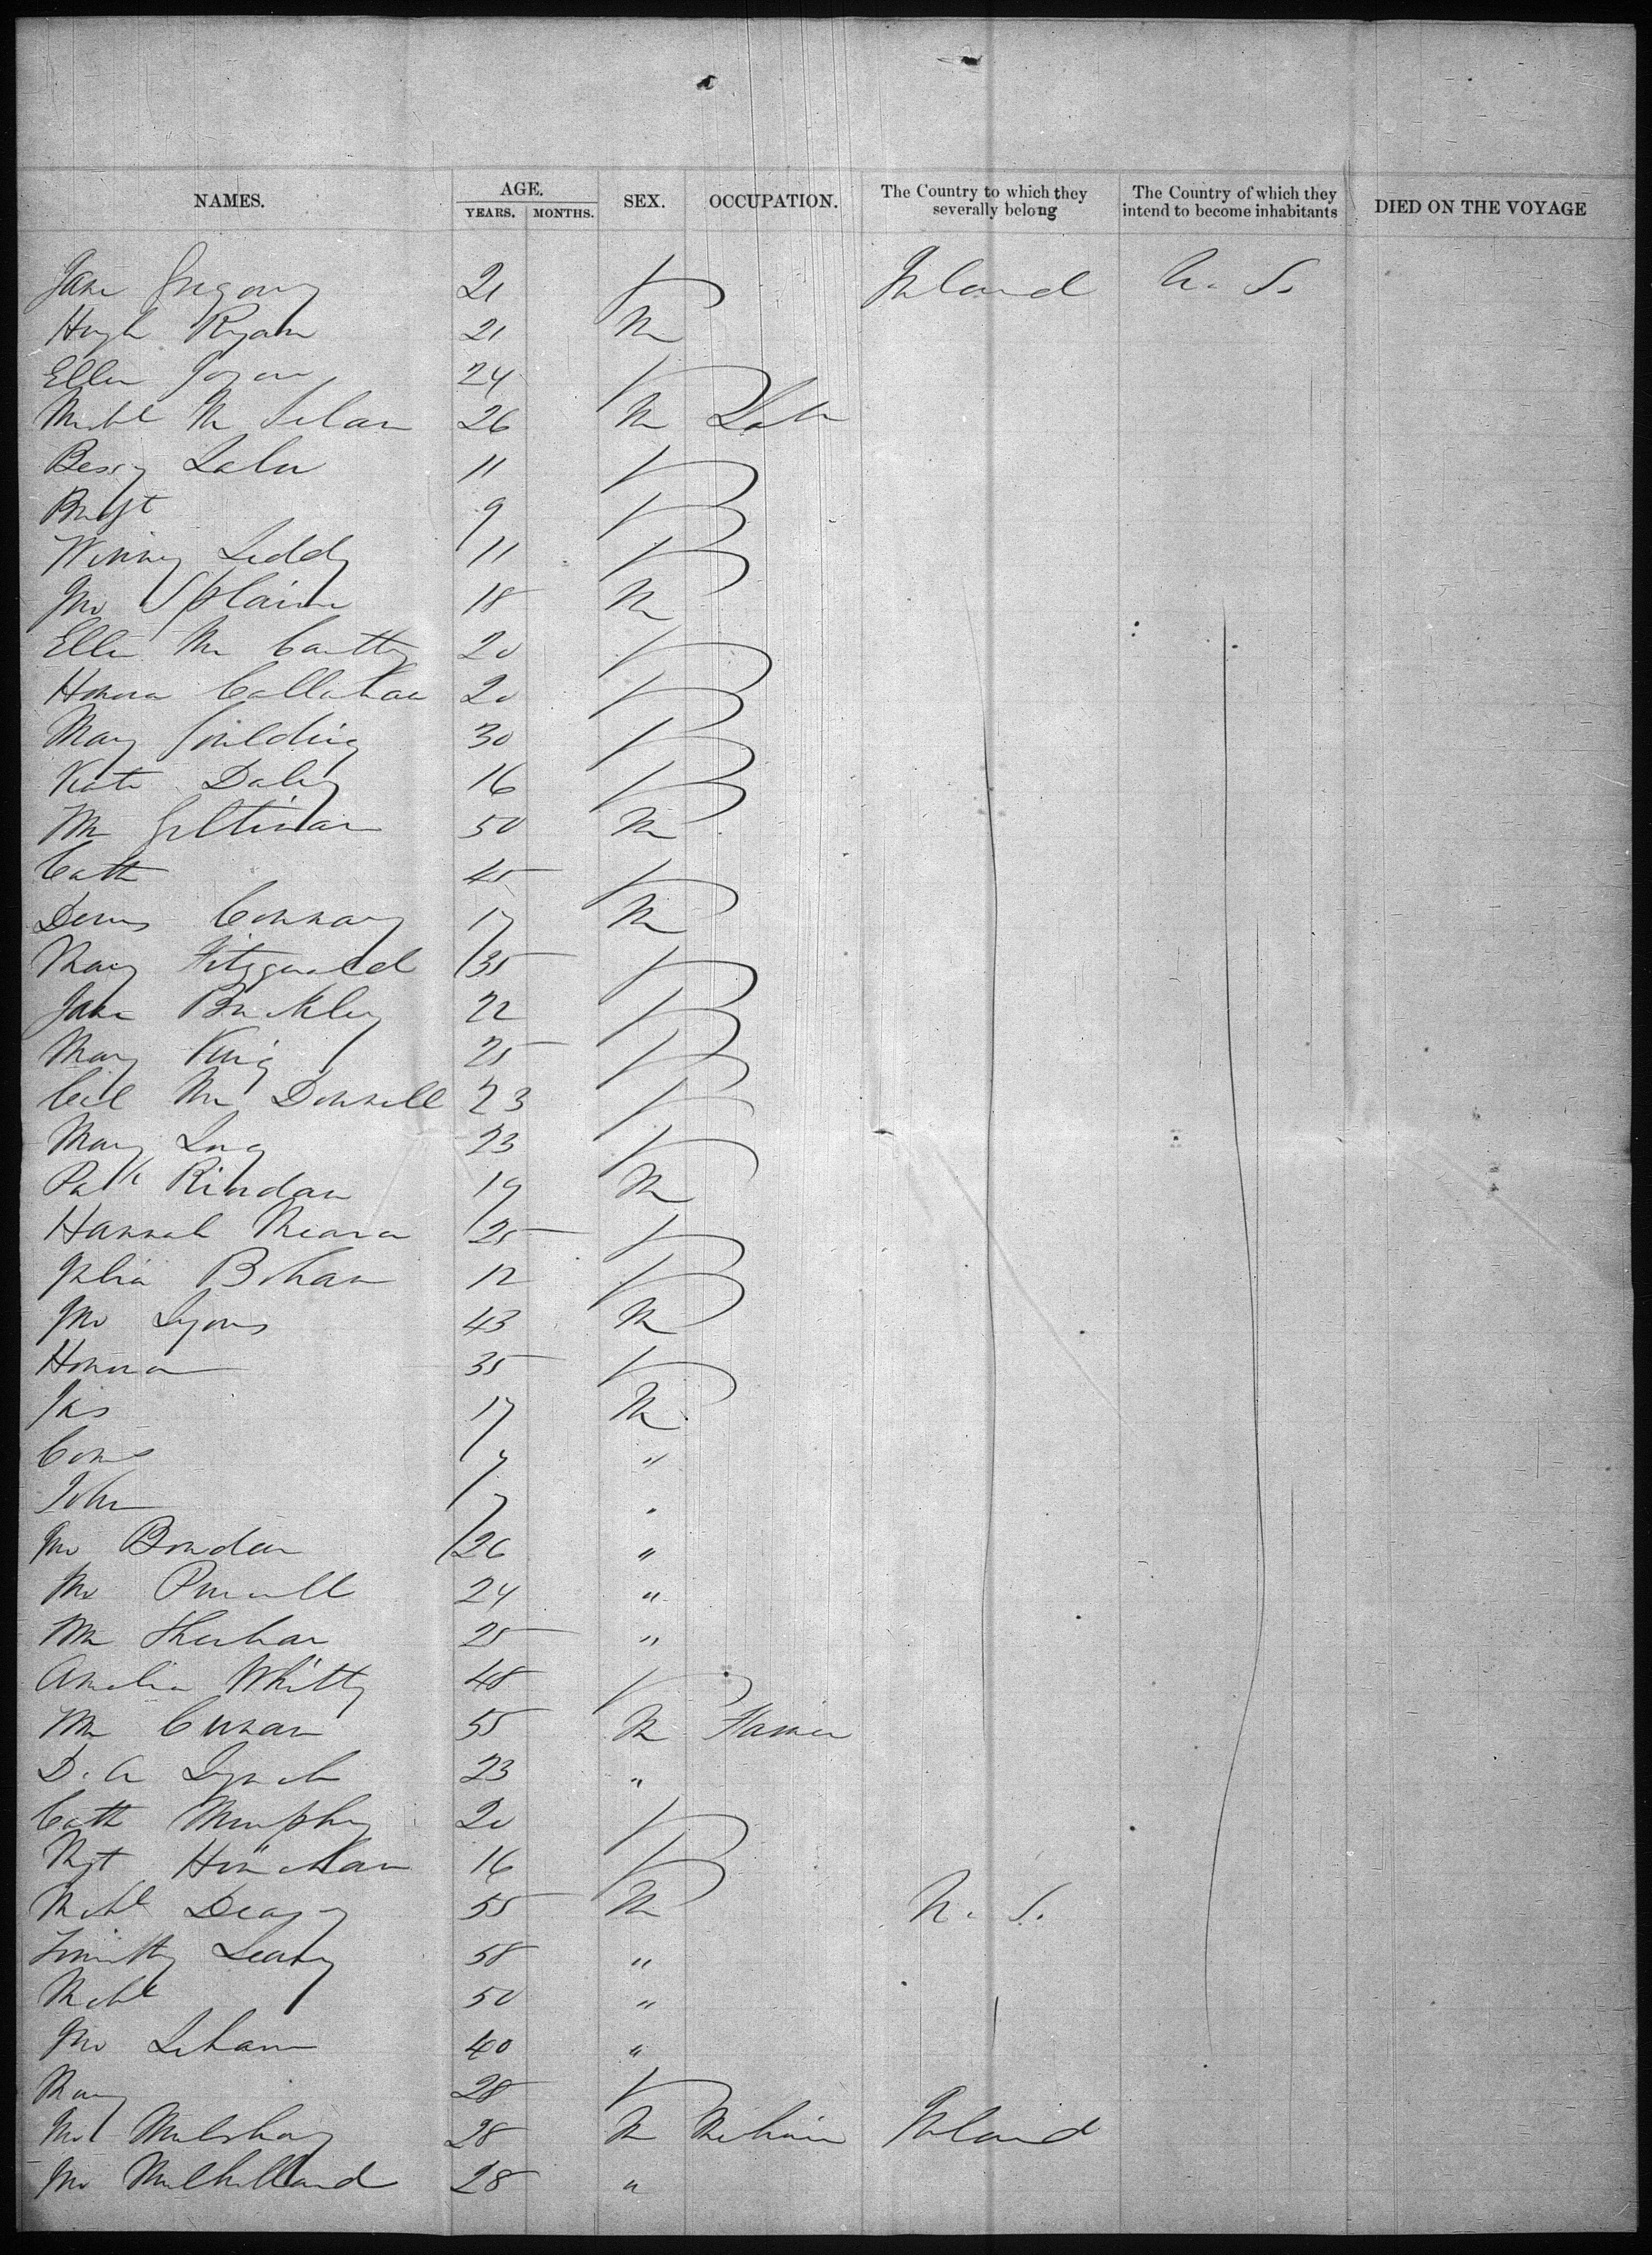 NAMES. AGE. YEARS. MONTHS. SEX. OCCUPATION. The Country to which they severally belong The Country of which they intend to become inhabitants DIED ON THE VOYAGE
Jane Gregory 21 Ireland U. S.
Hugh Ryan 21 M
Ellen 24
Michl Mc 26 M Labr
Bessy Lalor 11
Bridgt 9
Winny Leddy 11
Jno Splaine 18 M
Ellen Mc Carthy 20
Honora Callahan 20
Mary Goulding 30
Kate Daley 16
Wm Giltinan 50 M
Cath 45
Denis Conway 17 M
Mary Fitzgerald 35
Jane Buckley 22
Mary King 25
Mc Donnell 23
Mary Long 23
Patk Riordan 19 M
Hannah Meara 25
Julia Bohan 12
Jno Lyons 43 M
Honora 35
Jas 17 M
Corns 7 "
John 7 "
Jno 26 "
24 "
Wm 25 "
Amelia Whitty 48
Wm Curran 55 M Farmer
D. A Lynch 23 "
Cath Murphy 20
Mgt 16
Michl Deasy 55 M U. S.
Timothy Leary 58 "
Michl 50 "
Jno Lehane 40 "
Mary 28
28 M Ireland
Jno Mulholland 28 "